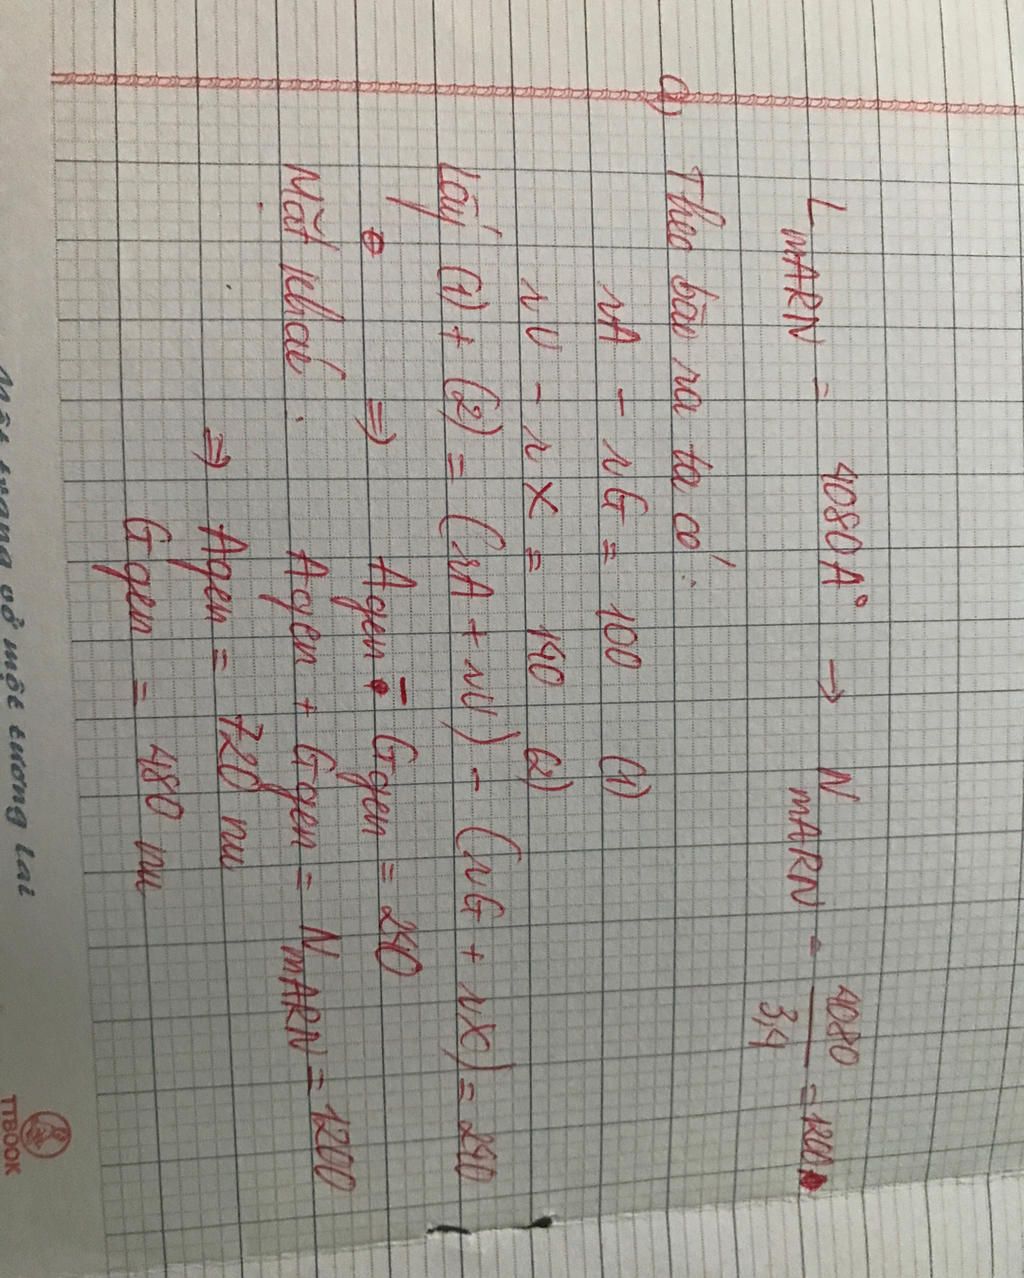 L mARN = 4080A° → N mARN = 4080 / 3,4 = 1200
a) Theo bào ra ta có:
rA - rG = 100 (1)
rU - rX = 140 (2)
Lấy (1) + (2) = (rA + rU) - (rG + rX) = 240
⇒ Agen - Ggen = 240
Mặt khác: Agen + Ggen = N mARN = 1200
⇒ Agen = 720 nu
Ggen = 480 nu
một tương lai
TTBOOK